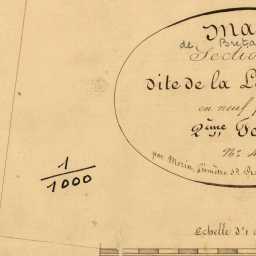 Ma
de Breta
Sectio
dite de la L
en neuf
2ème
N°
par Morin, Géomètre de
1/1000
Echelle d'1